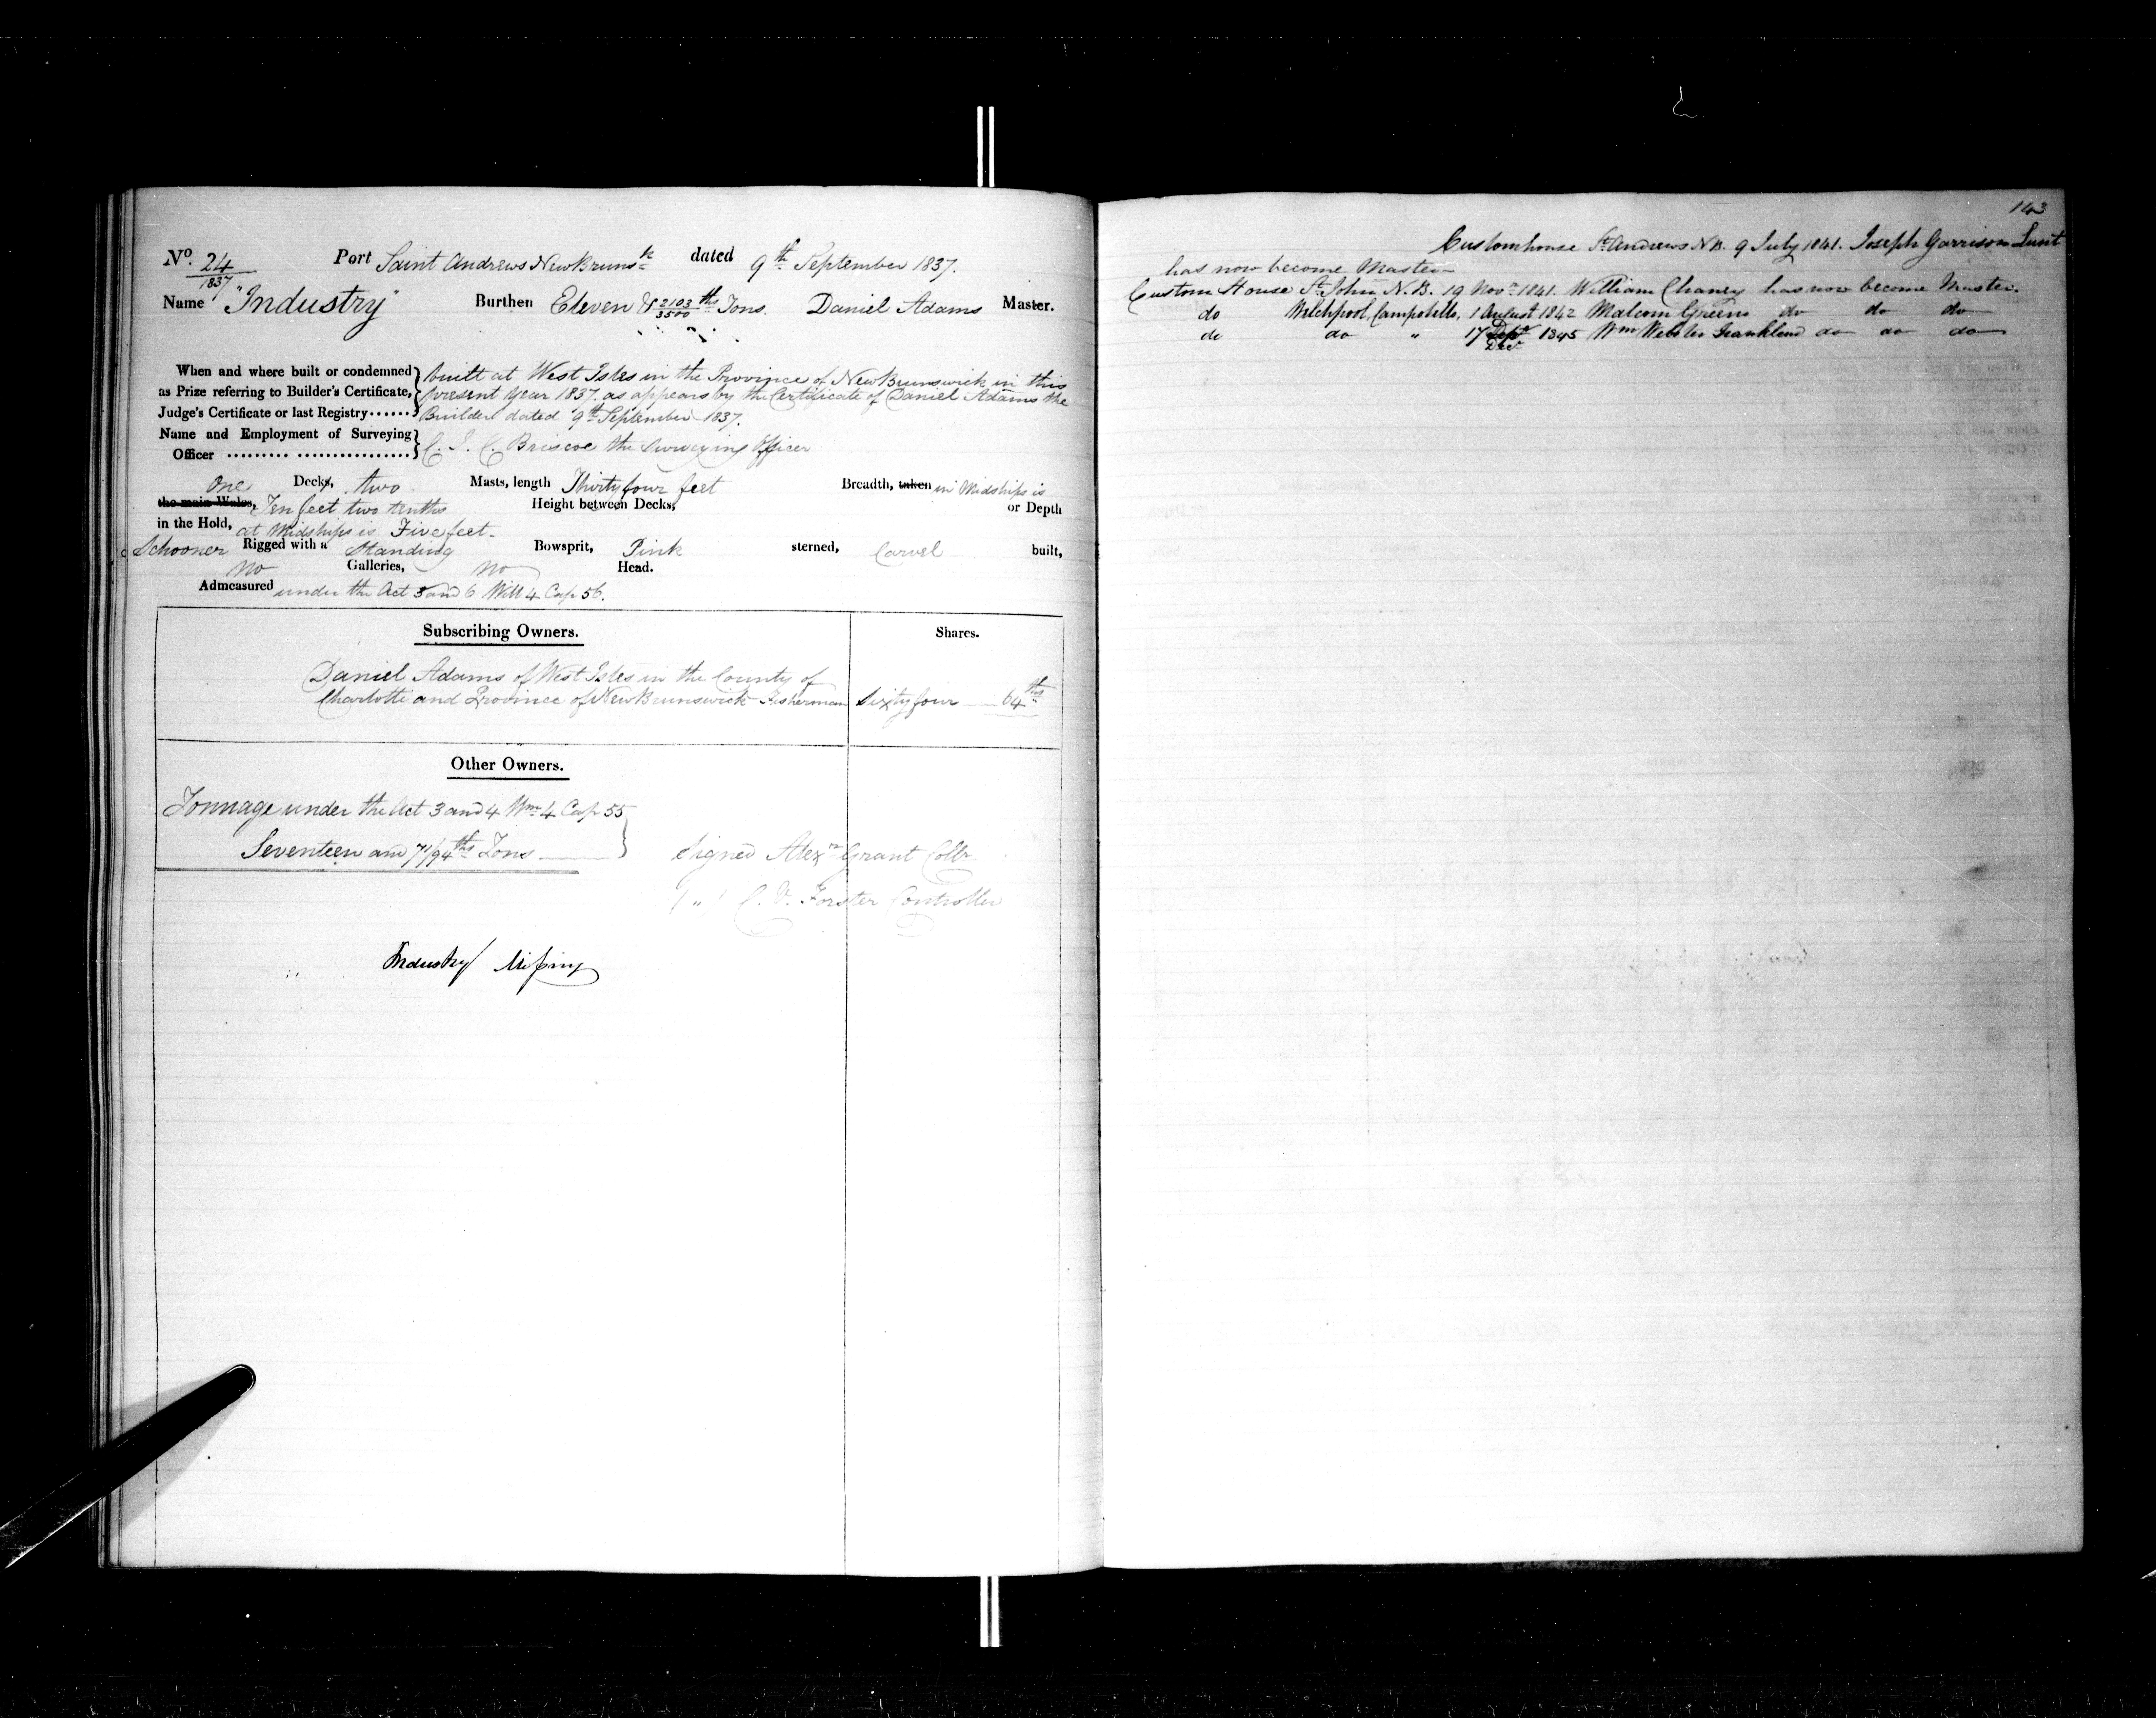 No. 24/1837 Port Saint Andrews New Brunsk dated 9th September 1837.
Name "Industry" Burthen Eleven & 2103/3500 ths Tons. Daniel Adams Master.
When and where built or condemned as Prize referring to Builder's Certificate, Judge's Certificate or last Registry
built at West Isles in the Province of New Brunswick in this
present Year 1837. as appears by the Certificate of Daniel Adams the
Builder dated 9th September 1837.
Name and Employment of Surveying Officer C. J. C. Briscoe the Surveying Officer
One Decks, two Masts, length Thirty four feet Breadth, taken in Midships is
the main Wales, Ten feet two tenths Height between Decks, or Depth
in the Hold, at Midships is Five feet.
Schooner Rigged with a Standing Bowsprit, Pink sterned, Carvel built,
no Galleries, no Head.
Admeasured under the Act 5 and 6 Will 4 Cap 56.
Subscribing Owners. Shares.
Daniel Adams of West Isles in the County of
Charlotte and Province of New Brunswick Fisherman Sixty four 64ths
Other Owners.
Tonnage under the Act 3 and 4 Wm 4 Cap 55
Seventeen and 71/94ths Tons
Signed Alexr Grant Collr
(") C. V. Forster Controller
Industry Missing
143
Customhouse St Andrews N.B. 9 July 1841. Joseph Garrison Lunt
has now become Master
Custom House St John N.B. 19 Novr 1841. William Chaney has now become Master.
do Welchpool, Campobello, 1 August 1842 Malcom Greene do do do
do do " 17 Sept Decr 1845 Wm Webster Frankland do do do